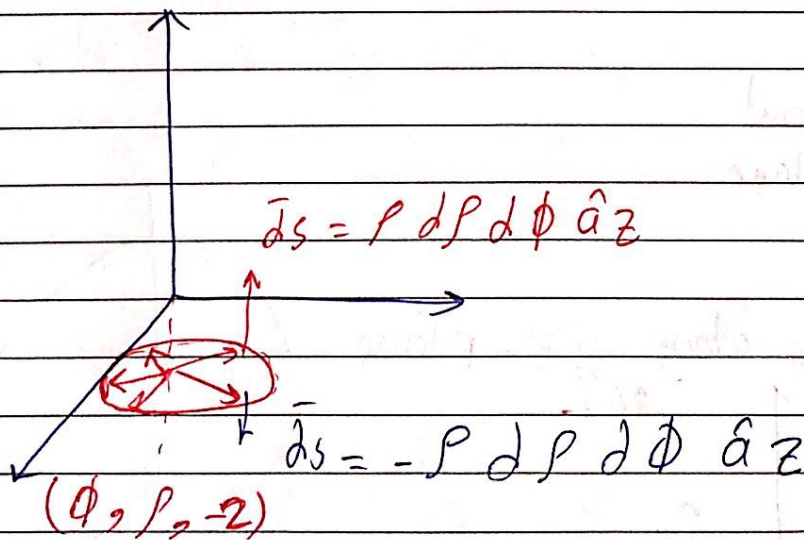 d̄s = ρ dρ dϕ â z
d̄s = - ρ dρ dϕ â z
(ϕ, ρ, -2)